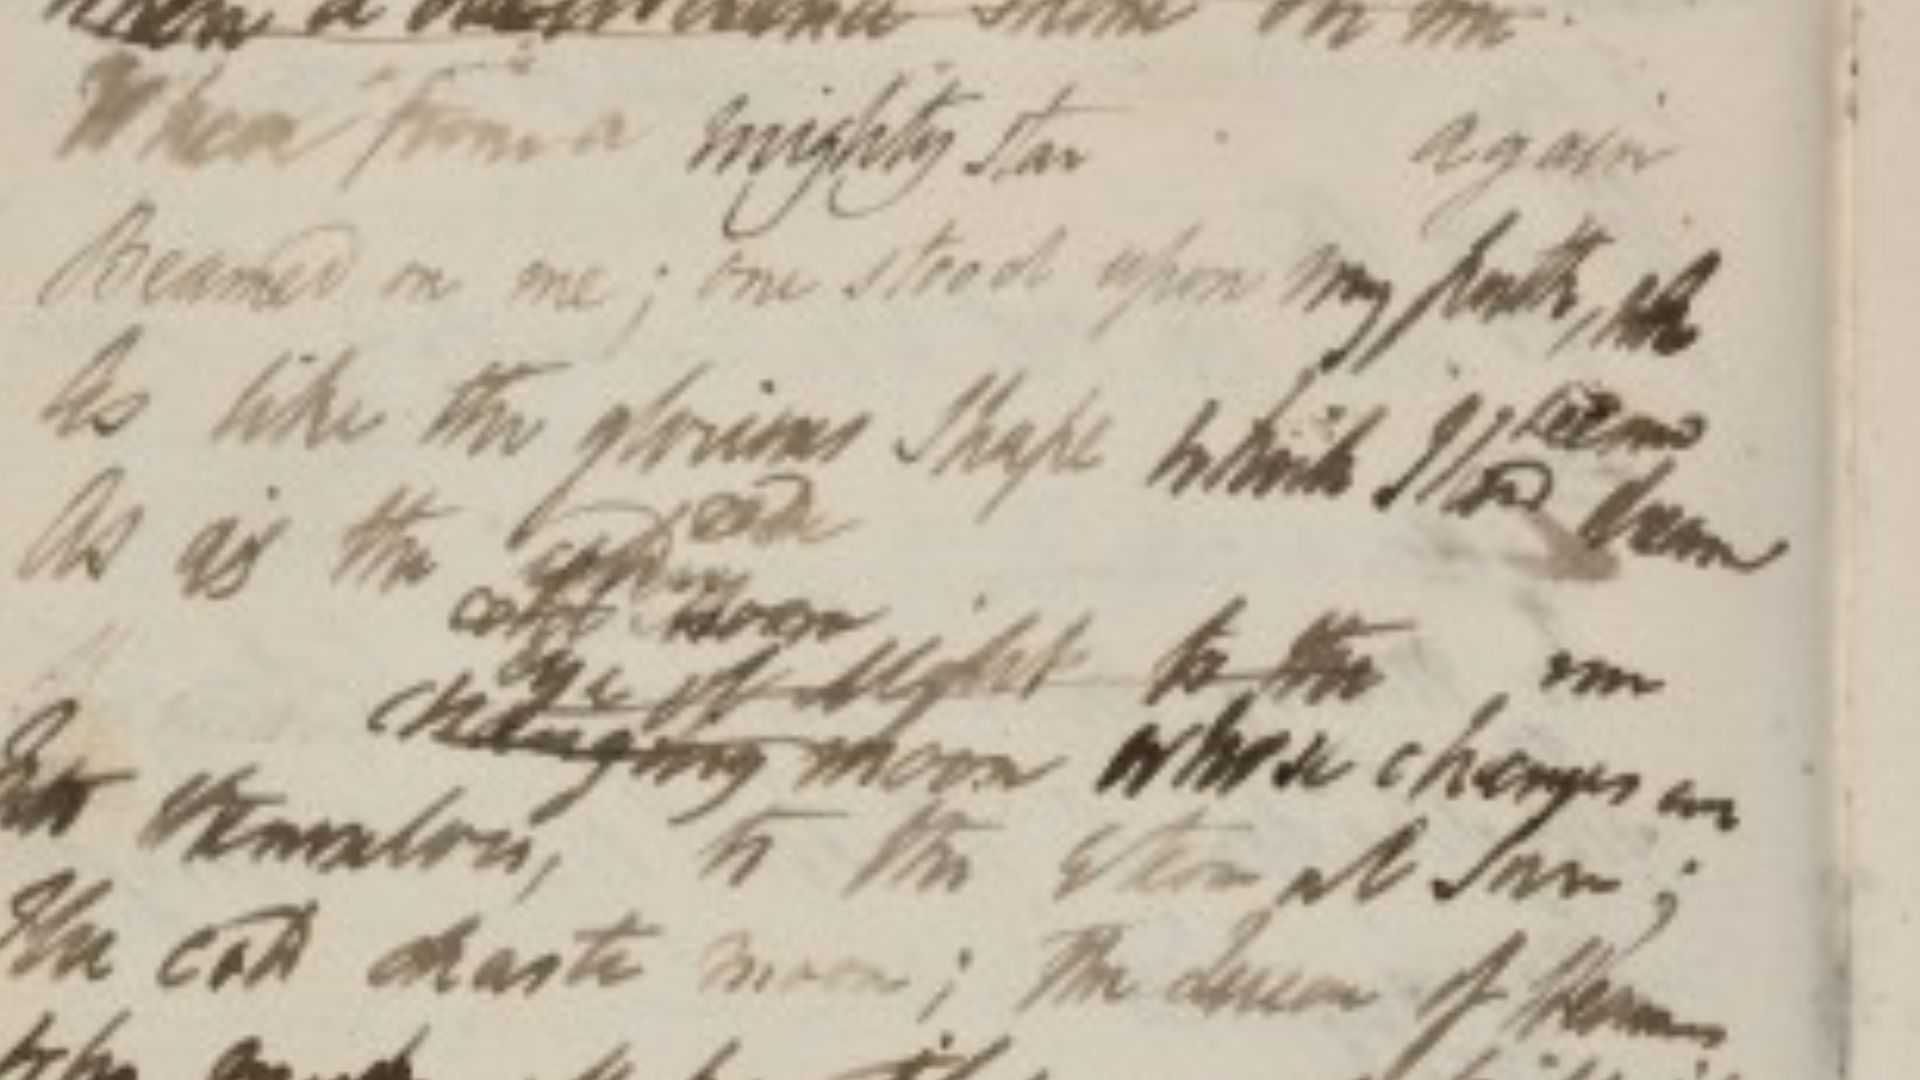 shone on me
When from a mighty star again
Beamed on me; one stood upon my path, who
As like the glorious shape which I had dreamed
seems
As is the cold
cold moon
eye of light to the
changing moon whose changes
themselves, to the eternal Sun;
The cold chaste moon; The Queen of Heavens
who